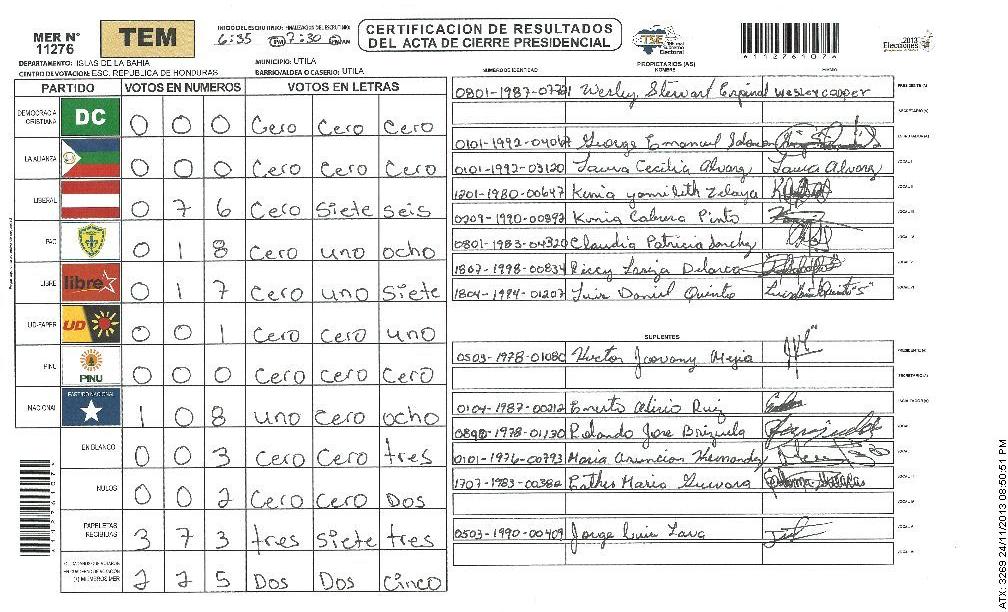 MER N° 11276
TEM
INICIO DEL ESCRUTINIO: FINALIZACION DEL ESCRUTINIO:
6:35 PM 7:30 PM AM
CERTIFICACION DE RESULTADOS
DEL ACTA DE CIERRE PRESIDENCIAL
TSE Tribunal Supremo Electoral
*11276107*
2013 Elecciones
DEPARTAMENTO: ISLAS DE LA BAHIA
MUNICIPIO: UTILA
CENTRO DE VOTACION: ESC. REPUBLICA DE HONDURAS
BARRIO/ALDEA O CASERIO: UTILA
PARTIDO VOTOS EN NUMEROS VOTOS EN LETRAS
DEMOCRACIA CRISTIANA DC 0 0 0 Cero Cero Cero
LA ALIANZA 0 0 0 Cero Cero Cero
LIBERAL 0 7 6 Cero Siete seis
PAC 0 1 8 Cero uno ocho
LIBRE libre 0 1 7 Cero uno Siete
UD-FAPER UD 0 0 1 Cero Cero uno
PINU PINU 0 0 0 Cero Cero Cero
NACIONAL PARTIDO NACIONAL 1 0 8 uno Cero ocho
EN BLANCO 0 0 3 Cero Cero tres
NULOS 0 0 2 Cero Cero Dos
PAPELETAS RECIBIDAS 3 7 3 tres Siete tres
MIEMBROS MER 2 2 5 Dos Dos Cinco
NUMERO DE IDENTIDAD PROPIETARIOS (AS) NOMBRE FIRMA
Wesley Stewart wesley cooper PRESIDENTE (A)
SECRETARIO (A)
George Emanuel
0101-1992-03120 Laura Cecilia Alvarez Laura Alvarez
1201-1980-00647 Kenia yamileth Zelaya
0209-1990-00897 Kenia Cabrera Pinto
0801-1983-04320 Claudia Patricia Sanchez
1807-1998-00834
1804-1994-01207 Luis Daniel Quinto
SUPLENTES
0503-1978-01080 Hector Jeovany Mejia PRESIDENTE (A)
SECRETARIO (A)
0104-1987-00212 Ernesto Alirio Ruiz
Rolando Jose Brizuela
0101-1976-00793 Maria Asuncion Hernandez
Esther Maria Guevara
0503-1990-00409 Jorge Luis
ATX: 3269 24/11/2013 08:50:51 PM